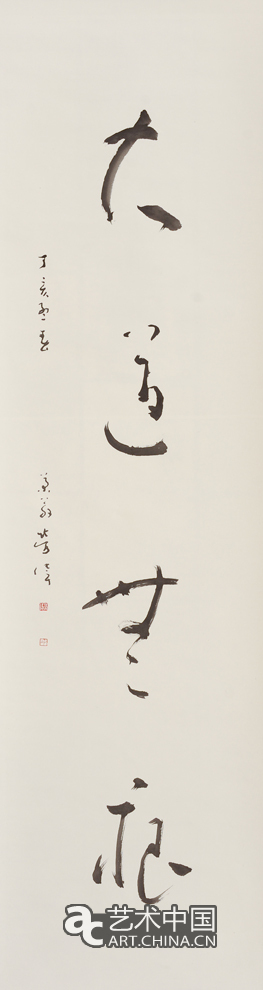 大道無痕
丁亥孟春
艺术中国
ART.CHINA.CN